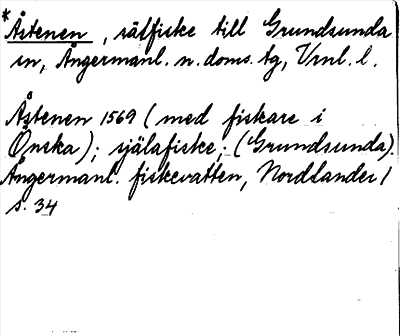 * Åstenen, sälfiske till Grundsunda
sn, Ångermanl. n. doms. tg, Vrnl. l.
Åstenen 1569 (med fiskare i
Önska); själafiske; (Grundsunda).
Ångermanl. fiskevatten, Nordlander 1
s. 34